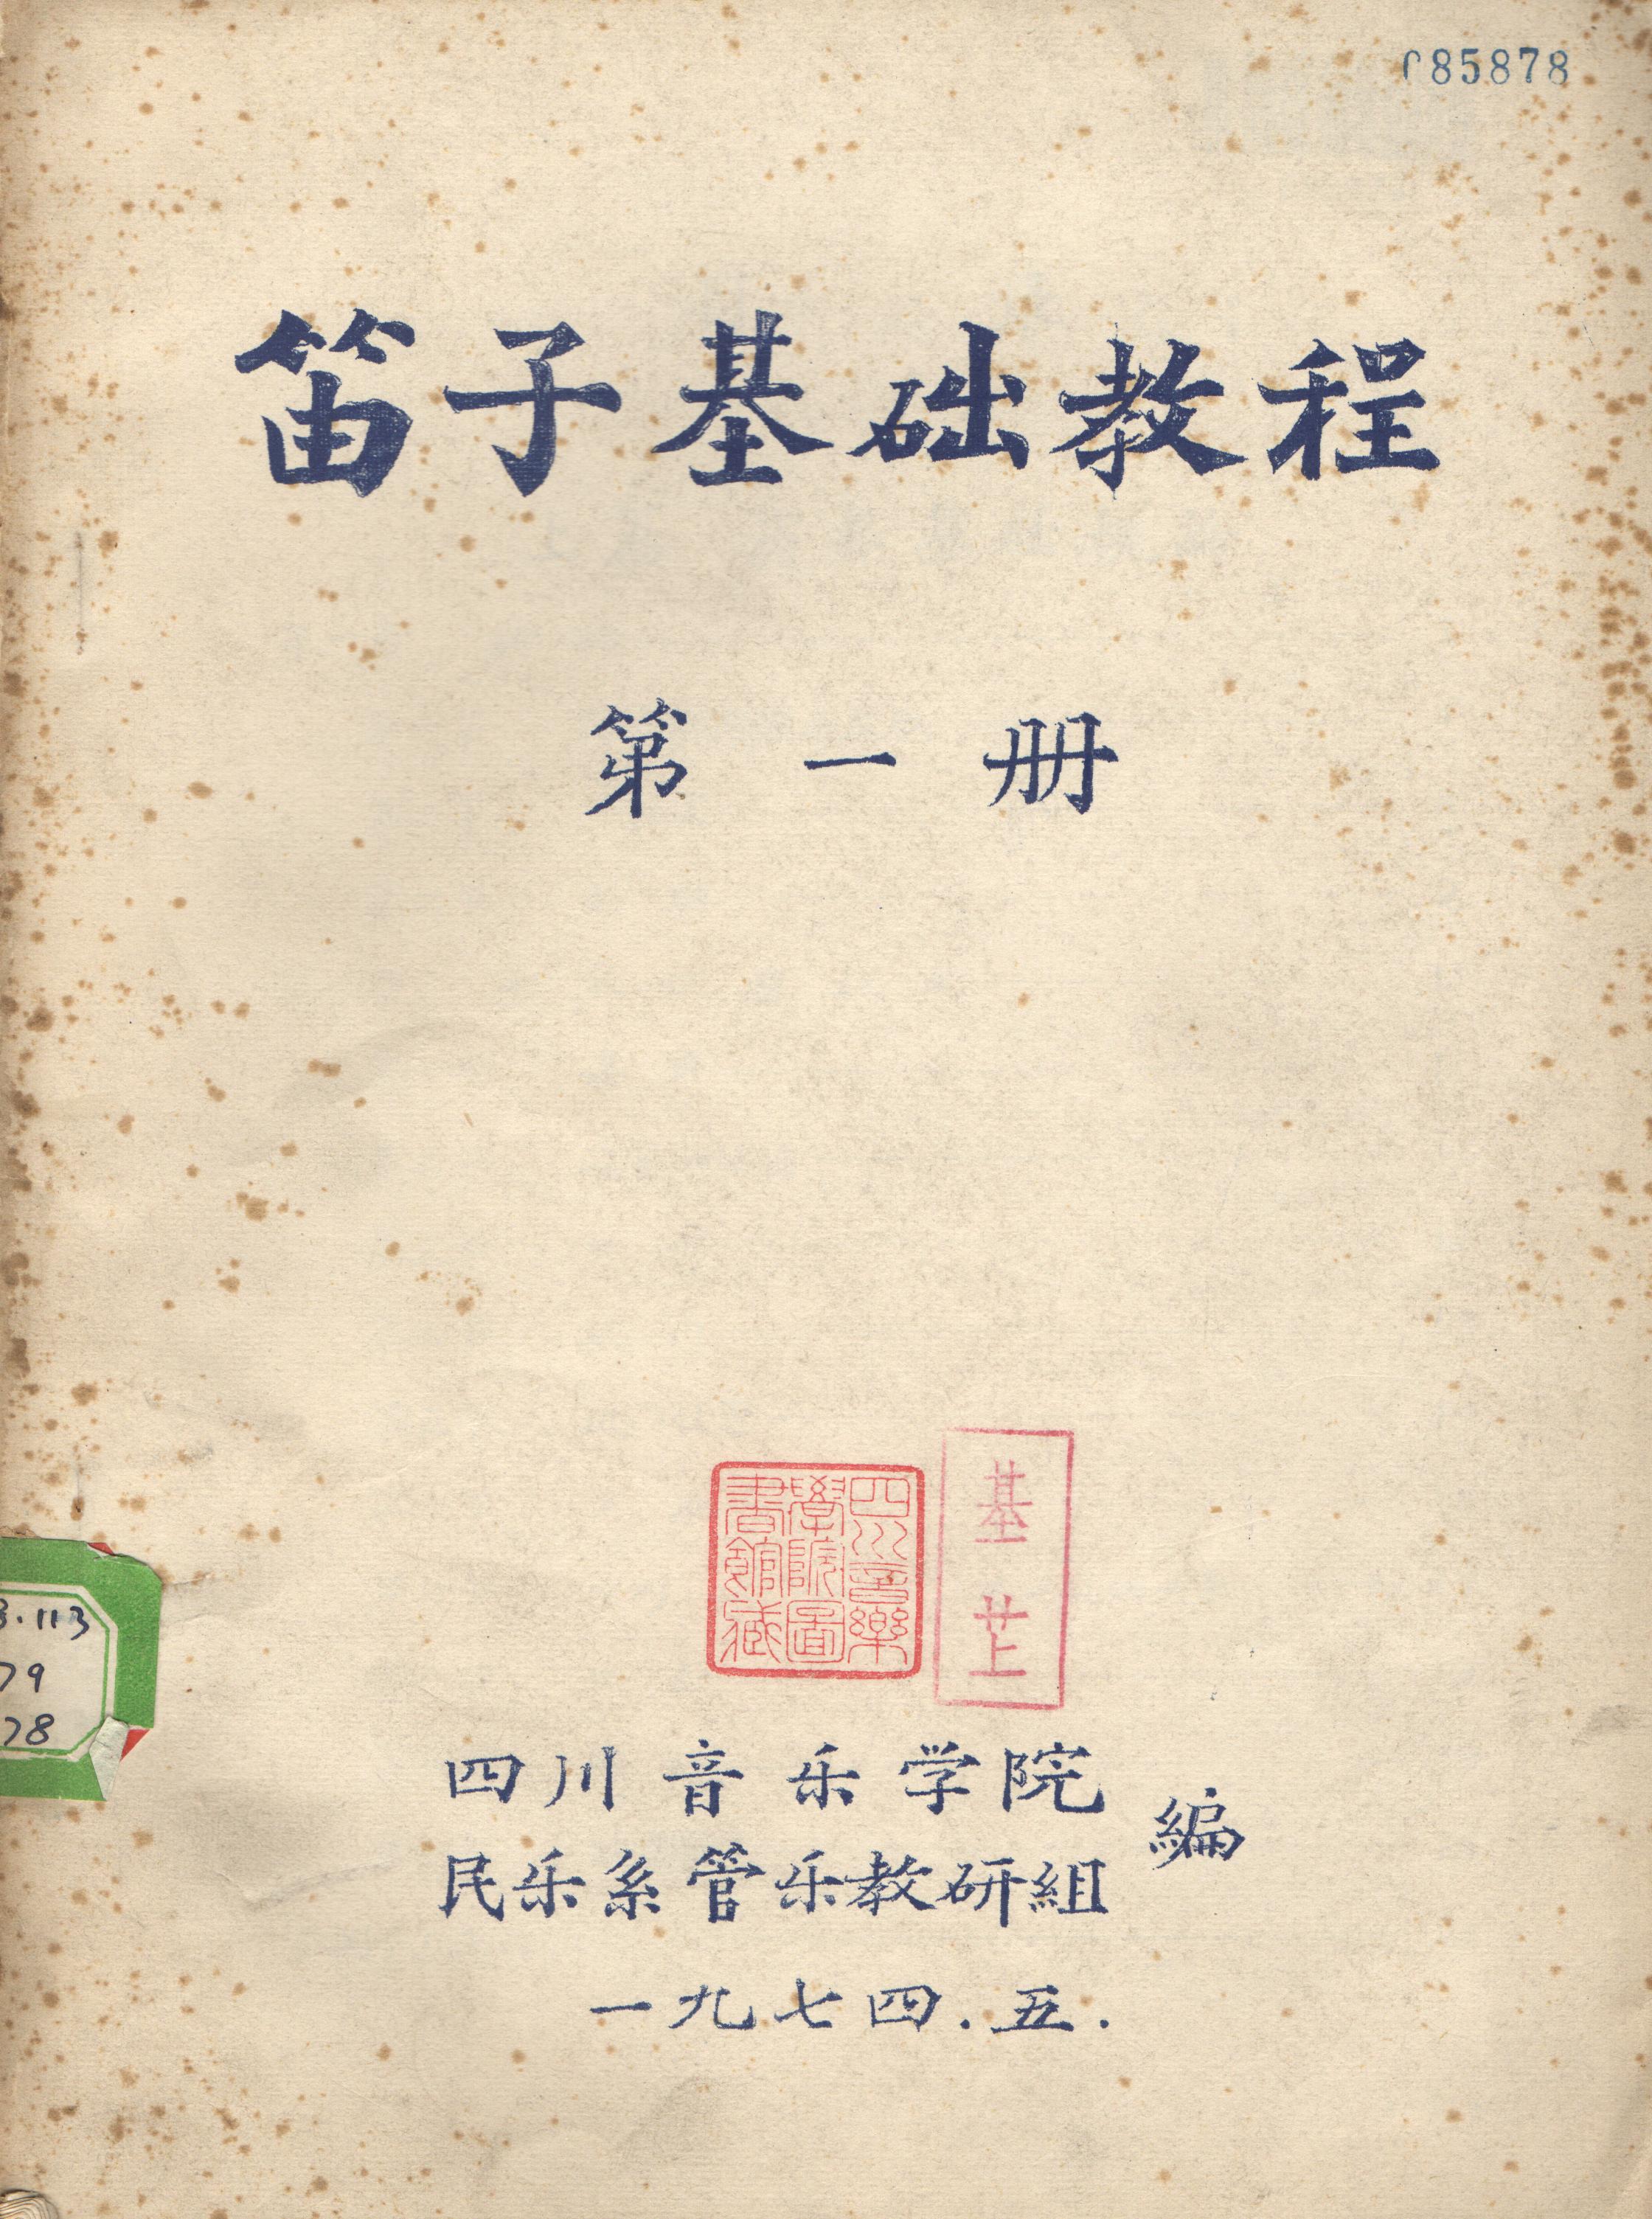 085878
笛子基础教程
第一册
四川音樂
學院圖
書館藏
基芷
3.113
79
78
四川音乐学院
民乐系管乐教研組
編
一九七四.五.